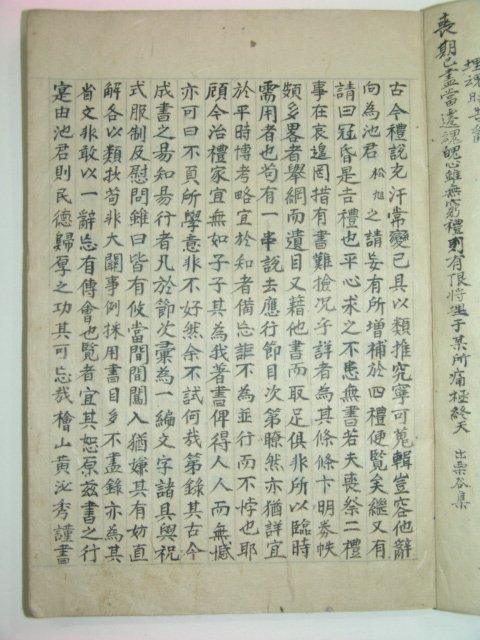 喪期已盡當遷魂魄心雖無窮禮則有限將埋于某所痛極終天 出栗谷集
古今禮說充汗常變已具以類推究寧可蒐輯豈容他辭
向為池君 松旭 之請妄有所增補於四禮便覽矣繼又有
請曰冠昏是吉禮也平心求之不患無書若夫喪祭二禮
事在哀遑罔措有書難撿况子詳者為其條條卞明劵帙
頗多畧者舉綱而遺目又藉他書而取足俱非所以臨時
需用者也苟有一串說去應行節目次第瞭然亦猶詳宜
於平時博考略宜於知者備忘詎不為並行而不悖也耶
顧今治禮家宜無如子子其為我著書俾得人人而無憾
亦可曰不負所學意非不好然余不試何哉第錄其古今
成書之易知易行者凡於節次彙為一編文字諸具與祝
式服制及慰問雖曰皆有攸當間間闖入猶嫌其有妨直
解各以類抄苟非大關事例採用書目多不盡錄亦為其
省文非敢以一辭忘有傳會也覧者宜其恕原玆書之行
寔由池君則民德歸厚之功其可忘哉檜山黄泌秀謹書